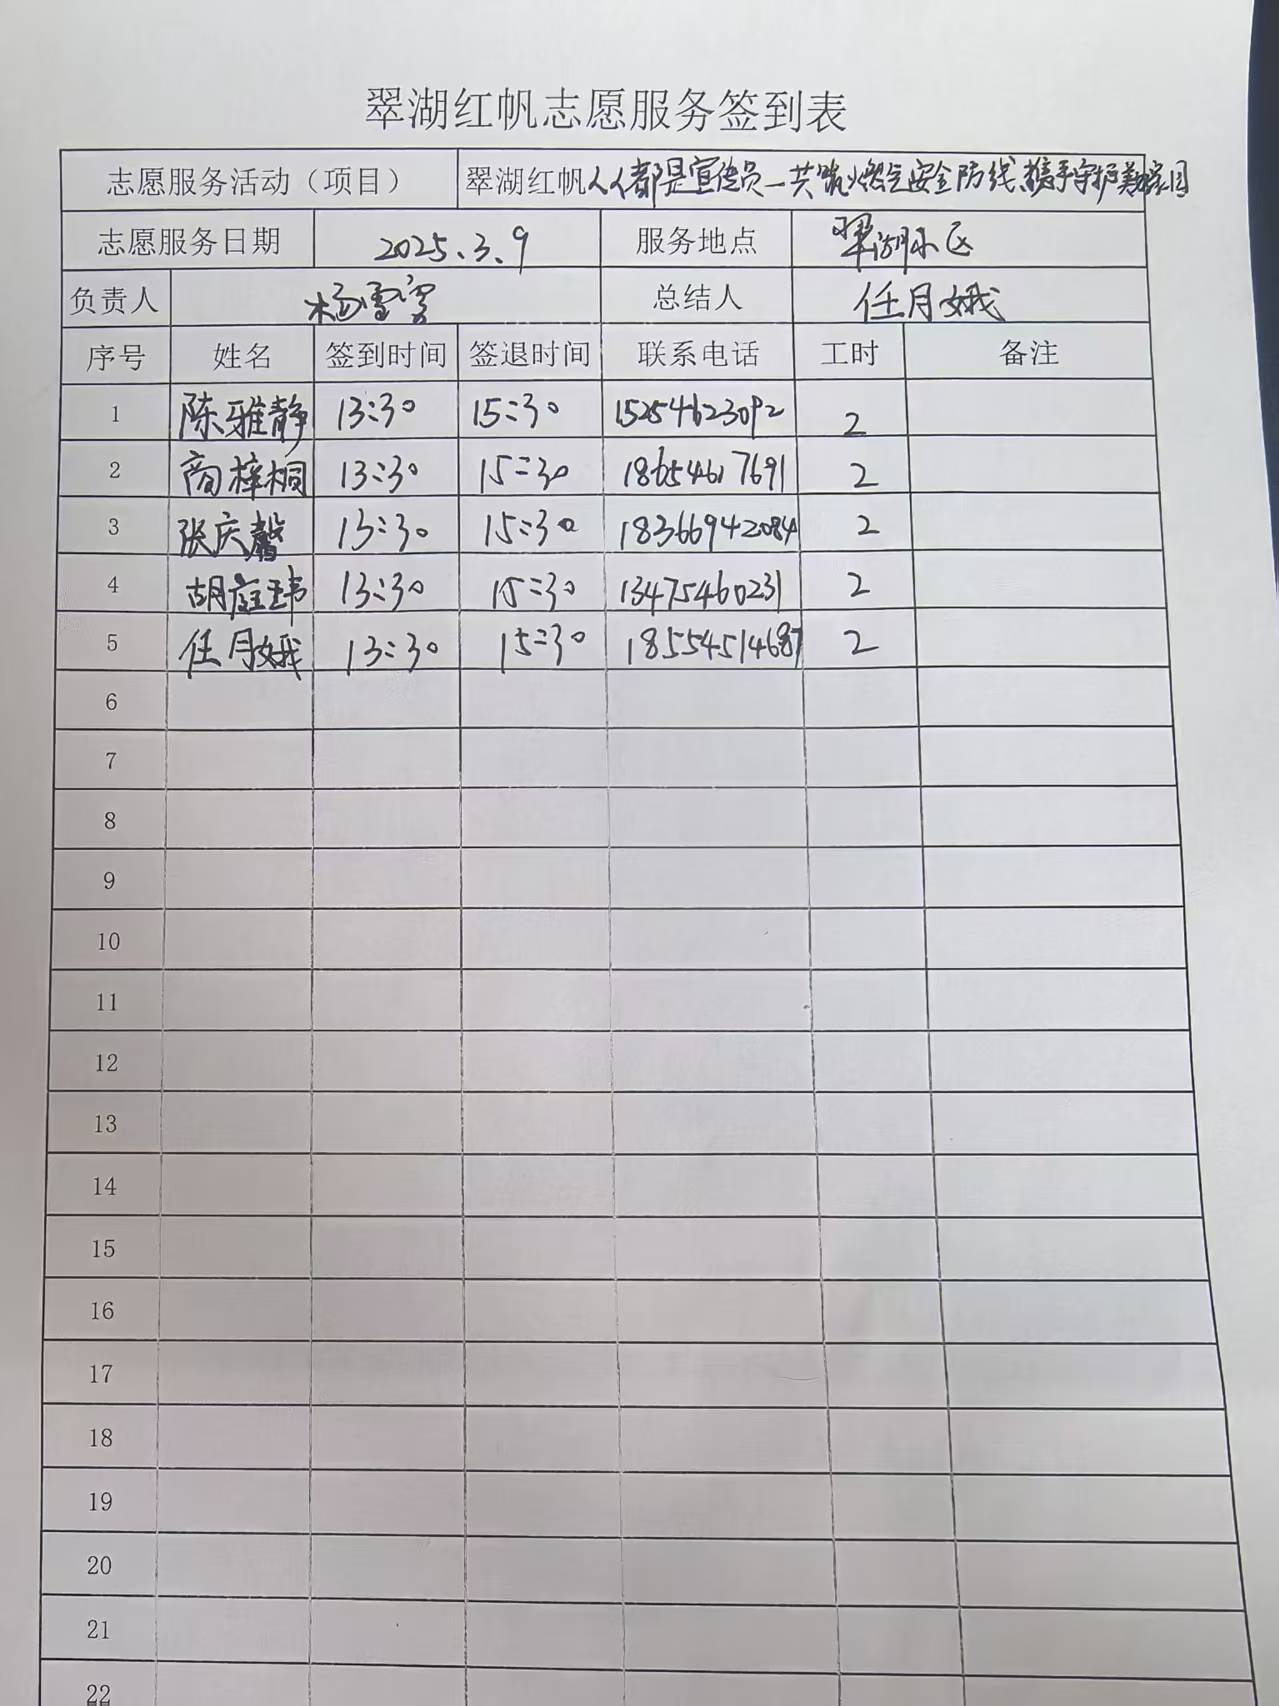 翠湖红帆志愿服务签到表
志愿服务活动（项目） 翠湖红帆人人都是宣传员—共筑燃气安全防线、携手守护美好家园
志愿服务日期 2025.3.9 服务地点 翠湖小区
负责人 杨雪 总结人 任月娥
序号 姓名 签到时间 签退时间 联系电话 工时 备注
1 陈雅静 13:30 15:30 15254623092 2
2 商梓桐 13:30 15:30 18654617691 2
3 张庆馨 13:30 15:30 18366942084 2
4 胡庭玮 13:30 15:30 13475460231 2
5 任月娥 13:30 15:30 18554514687 2
6
7
8
9
10
11
12
13
14
15
16
17
18
19
20
21
22